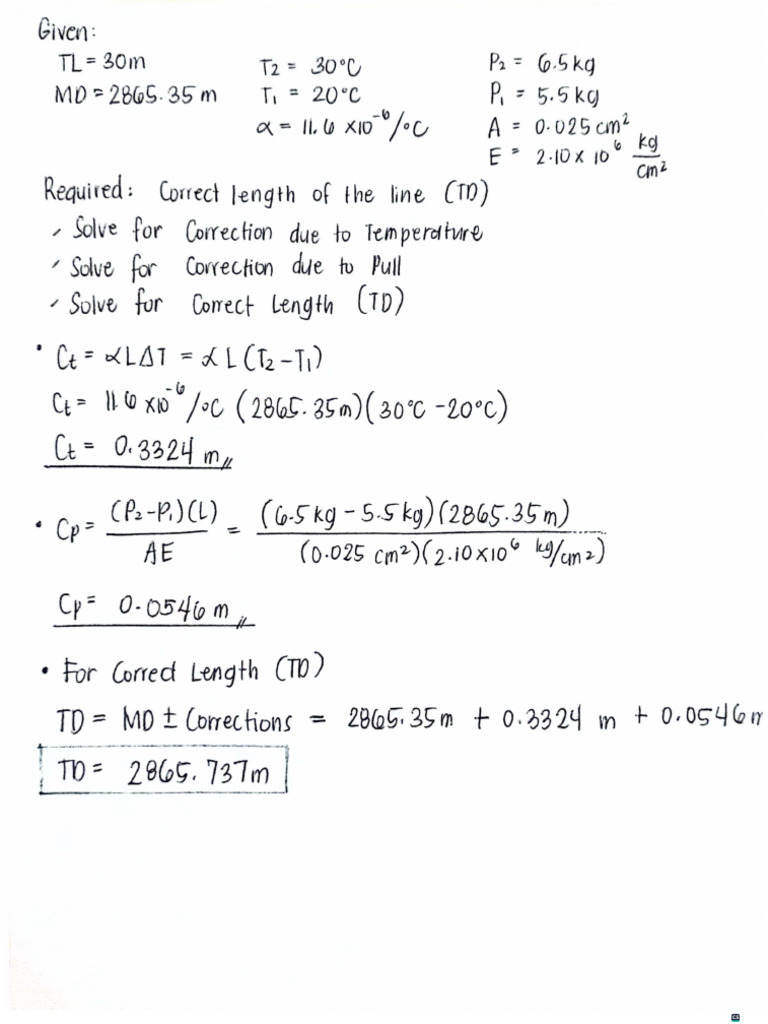 Given:
TL = 30m
MD = 2865.35 m
T2 = 30°C
T1 = 20°C
α = 11.6 x10^-6/°C
P2 = 6.5kg
P1 = 5.5kg
A = 0.025 cm²
E = 2.10 x 10^6 kg/cm²
Required: Correct length of the line (TD)
Solve for Correction due to Temperature
Solve for Correction due to Pull
Solve for Correct Length (TD)
• Ct = αLΔT = αL(T2-T1)
Ct = 11.6 x10^-6/°C (2865.35m)(30°C -20°C)
Ct = 0.3324 m
• Cp = (P2-P1)(L)/AE = (6.5kg - 5.5kg)(2865.35m)/(0.025 cm²)(2.10x10^6 kg/cm²)
Cp = 0.0546 m
• For Correct Length (TD)
TD = MD ± Corrections = 2865.35m + 0.3324 m + 0.0546m
TD = 2865.737m
CS